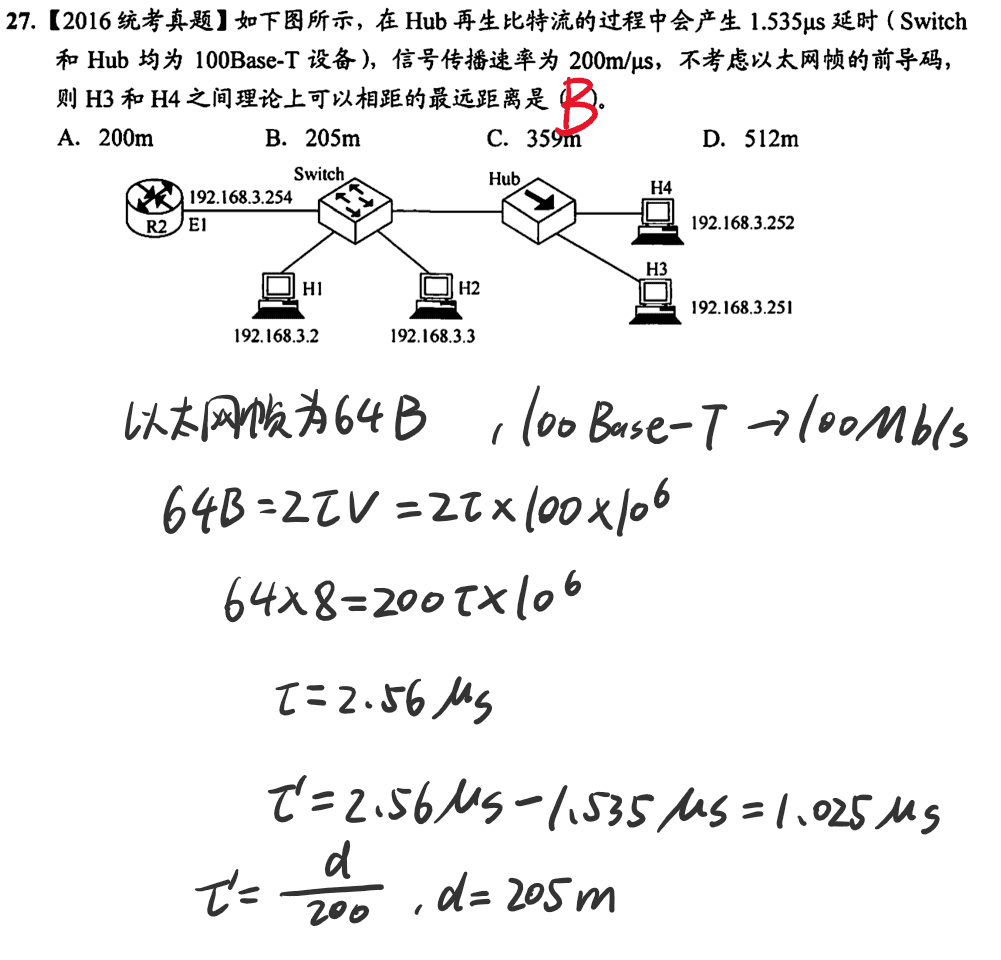 27.【2016 统考真题】如下图所示，在 Hub 再生比特流的过程中会产生 1.535μs 延时（Switch
和 Hub 均为 100Base-T 设备），信号传播速率为 200m/μs，不考虑以太网帧的前导码，
则 H3 和 H4 之间理论上可以相距的最远距离是（B）。
A. 200m B. 205m C. 359m D. 512m
Switch
Hub
H4
192.168.3.254
R2 E1
192.168.3.252
H3
H1
H2
192.168.3.251
192.168.3.2
192.168.3.3
以太网帧为64B ，100Base-T → 100Mb/s
64B = 2τV = 2τ×100×10⁶
64×8=200τ×10⁶
τ=2.56μs
τ'=2.56μs-1.535μs=1.025μs
τ'=d/200，d=205m